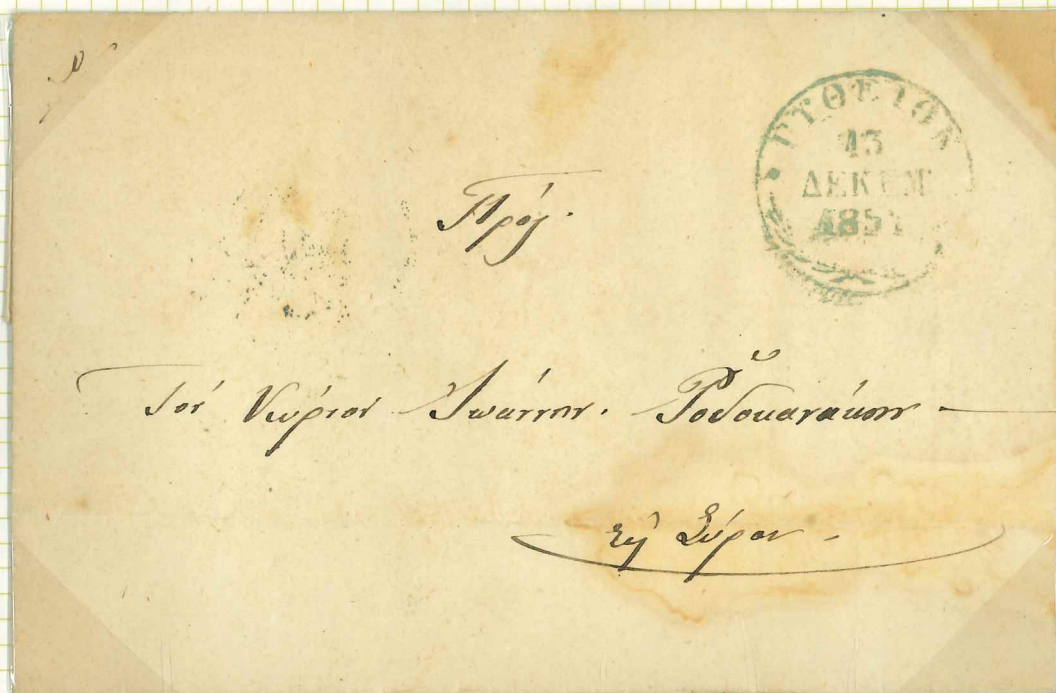 ΓΥΘΕΙΟΝ
13
ΔΕΚΕΜ
Πρὸς
Τὸν Κύριον Ἰωάννην. Ῥοδοκανάκην
εἰς Σύρον